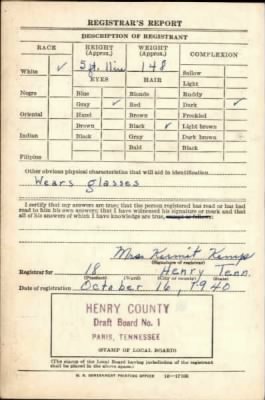 REGISTRAR'S REPORT
DESCRIPTION OF REGISTRANT
RACE HEIGHT (Approx.) WEIGHT (Approx.) COMPLEXION
White ✓ 5 ft. 11 in 148 Sallow
EYES HAIR Light
Negro Blue Blonde Ruddy
Gray ✓ Red Dark ✓
Oriental Hazel Brown Freckled
Brown Black ✓ Light brown
Indian Black Gray Dark brown
Bald Black
Filipino
Other obvious physical characteristics that will aid in identification
Wears glasses
I certify that my answers are true; that the person registered has read or has had
read to him his own answers; that I have witnessed his signature or mark and that
all of his answers of which I have knowledge are true, except as follows:
Mrs Kermit Kemp
(Signature of registrar)
Registrar for 18 Henry Tenn.
(Precinct) (Ward) (City or county) (State)
Date of registration October 16, 1940
HENRY COUNTY
Draft Board No. 1
PARIS, TENNESSEE
(STAMP OF LOCAL BOARD)
(The stamp of the Local Board having jurisdiction of the registrant
shall be placed in the above space.)
U. S. GOVERNMENT PRINTING OFFICE 16—17105